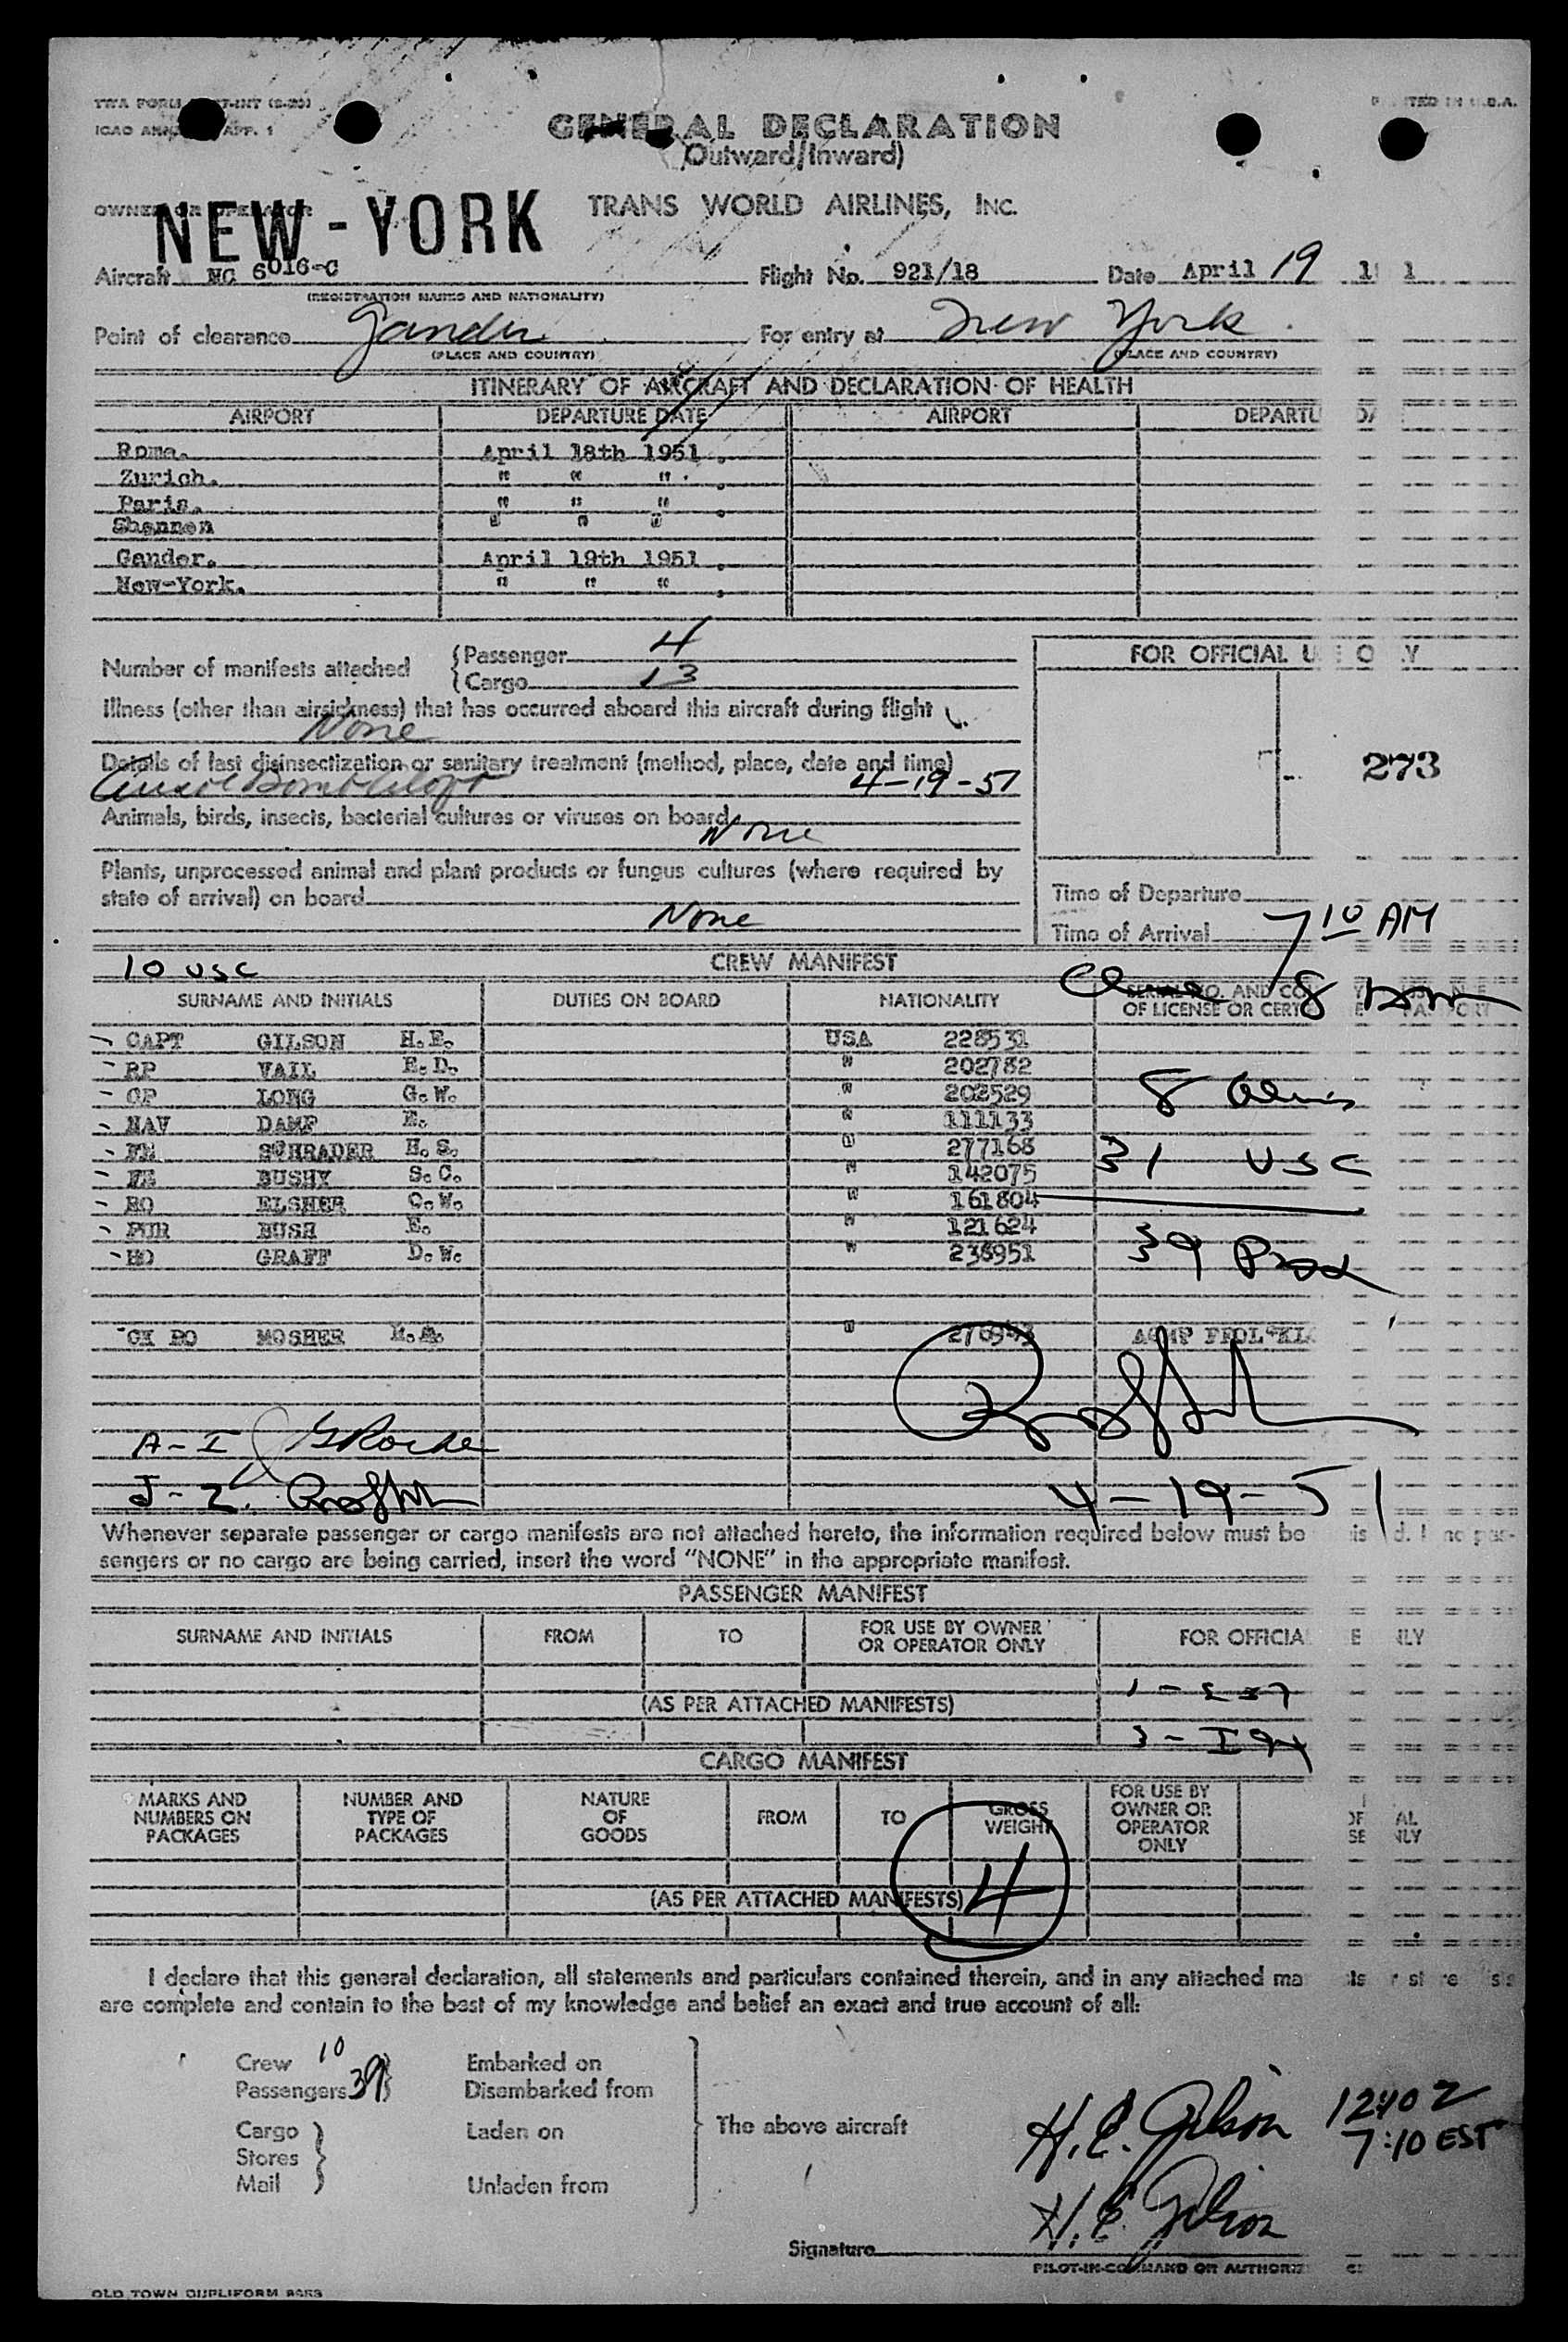 GENERAL DECLARATION
(Outward/Inward)
OWNER OR OPERATOR
NEW-YORK
TRANS WORLD AIRLINES, INC.
Aircraft NC 6016-C Flight No. 921/18 Date April 19
(REGISTRATION MARKS AND NATIONALITY)
Point of clearance Gander For entry at New York
(PLACE AND COUNTRY) (PLACE AND COUNTRY)
ITINERARY OF AIRCRAFT AND DECLARATION OF HEALTH
AIRPORT DEPARTURE DATE AIRPORT
Rome. April 18th 1951.
Zurich. " " ".
Paris. " " ".
Shannon " " "
Gander. April 19th 1951.
New-York. " " ".
Number of manifests attached {Passenger 4
{Cargo 13
FOR OFFICIAL
Illness (other than airsickness) that has occurred aboard this aircraft during flight
None
273
Details of last disinsectization or sanitary treatment (method, place, date and time)
4-19-51
Animals, birds, insects, bacterial cultures or viruses on board
None
Plants, unprocessed animal and plant products or fungus cultures (where required by
state of arrival) on board
None
Time of Departure
Time of Arrival 7 10 AM
10 USC CREW MANIFEST
SURNAME AND INITIALS DUTIES ON BOARD NATIONALITY
OF LICENSE OR
CAPT GILSON H.E. USA 228531
RP VAIL E.D. " 202782
CP LONG G.W. " 202529
NAV DAMP E. " 111133
FE SCHRADER H.S. " 277168
FE BUSHY S.C. " 142075
RO ELSHER C.W. " 161804
PUR BUSH E. " 121624
HO GRAFF D.W. " 238951
8
31 USC
39 Pax
CK RO MOSHER
A-I
J-2.
4-19-51
Whenever separate passenger or cargo manifests are not attached hereto, the information required below must be
sengers or no cargo are being carried, insert the word "NONE" in the appropriate manifest.
PASSENGER MANIFEST
SURNAME AND INITIALS FROM TO FOR USE BY OWNER
OR OPERATOR ONLY FOR
(AS PER ATTACHED MANIFESTS)
CARGO MANIFEST
MARKS AND
NUMBERS ON
PACKAGES
NUMBER AND
TYPE OF
PACKAGES
NATURE
OF
GOODS
FROM
TO
GROSS
WEIGHT
FOR USE BY
OWNER OR
OPERATOR
ONLY
4
(AS PER ATTACHED MANIFESTS)
I declare that this general declaration, all statements and particulars contained therein, and in any attached
are complete and contain to the best of my knowledge and belief an exact and true account of all:
Crew 10 Embarked on
Passengers 39} Disembarked from
Cargo Laden on
Stores
Mail Unladen from
The above aircraft
H.E. Gilson 1210 Z
7:10 EST
H.E. Gilson
Signature
PILOT-IN-COMMAND OR
OLD TOWN DUPLIFORM